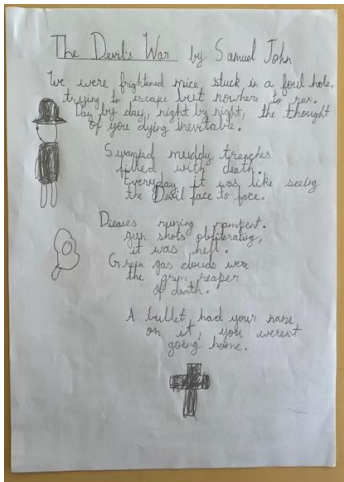 The Devil's War by Samuel John
We were frightened mice, stuck in a foul hole,
trying to escape but nowhere to run.
Day by day, night by night, the thought
of you dying inevitable.
Swamped muddy trenches
filled with death.
Everyday it was like seeing
the Devil face to face.
Dieases runing rampent.
gun shots obliterating,
it was hell.
Green gas clouds were
the grim reaper
of death.
A bullet had your name
on it, you werent
going home.